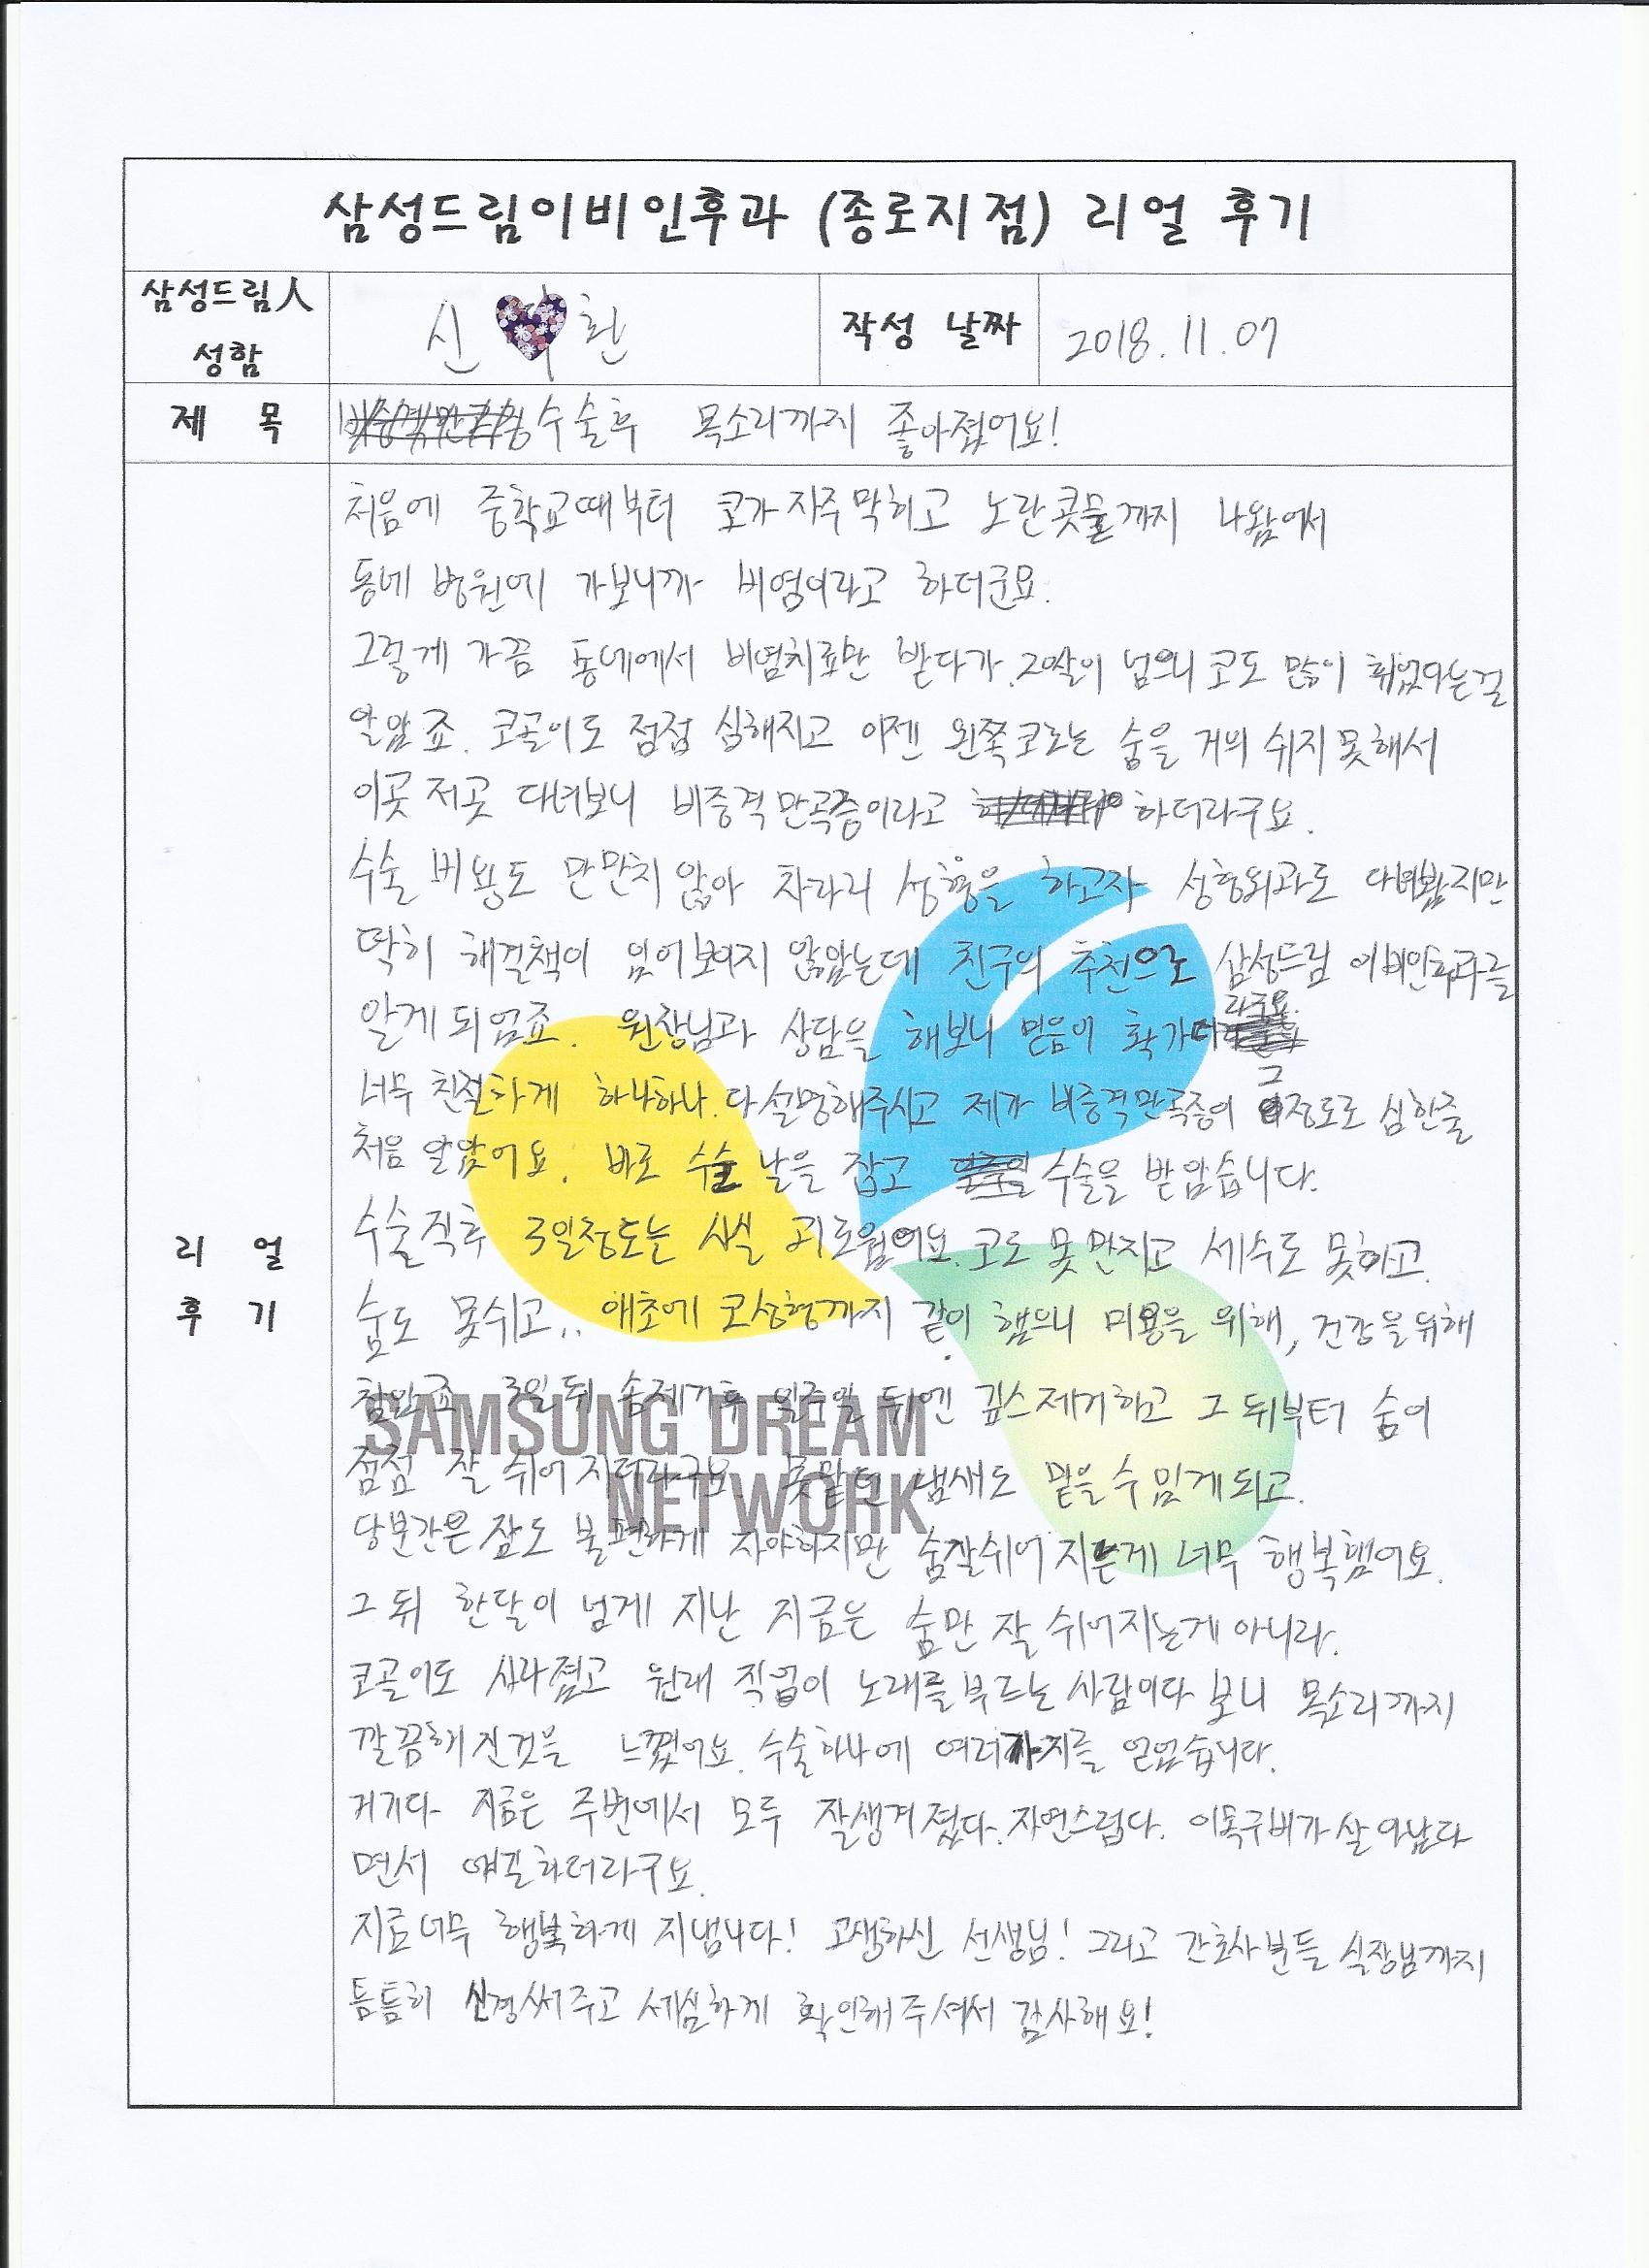 삼성드림이비인후과 (종로지점) 리얼 후기
삼성드림人
성함
신 환
작성 날짜
2018.11.07
제 목
수술후 목소리까지 좋아졌어요!
리 얼
후 기
처음에 중학교때부터 코가 자주막히고 노란콧물까지 나왔어서
동네 병원에 가보니까 비염이라고 하더군요.
그렇게 가끔 동네에서 비염치료만 받다가 20살이 넘으니 코도 많이 휘었다는걸
알았죠. 코골이도 점점 심해지고 이젠 왼쪽코로는 숨을 거의 쉬지못해서
이곳 저곳 다녀보니 비중격만곡증이라고 하더라구요.
수술 비용도 만만치 않아 차라리 성형을 하고자 성형외과도 다녀봤지만
딱히 해결책이 있어보이지 않았는데 친구의 추천으로 삼성드림 이비인후과를
알게되었죠. 원장님과 상담을 해보니 믿음이 확가더라구요.
너무 친절하게 하나하나 다설명해주시고 제가 비중격만곡증이 그정도로 심한줄
처음 알았어요. 바로 수술 날을 잡고 수술을 받았습니다.
수술직후 3일정도는 사실 괴로웠어요. 코도 못만지고 세수도 못하고.
숨도 못쉬고.. 애초에 코성형까지 같이 했으니 미용을 위해, 건강을위해
참았죠. 3일뒤 솜제거후 일주일 뒤엔 깁스제거하고 그뒤부터 숨이
점점 잘 쉬어지더라구요. 못맡던 냄새도 맡을수있게되고.
당분간은 잠도 불편하게 자야하지만 숨잘쉬어지는게 너무 행복했어요.
그뒤 한달이 넘게 지난 지금은 숨만 잘 쉬어지는게 아니라.
코골이도 사라졌고 원래 직업이 노래를부르는 사람이다 보니 목소리까지
깔끔해진것을 느꼈어요. 수술하나에 여러가지를 얻었습니다.
거기다 지금은 주변에서 모두 잘생겨졌다. 자연스럽다. 이목구비가 살아났다
면서 얘길하더라구요.
지금너무 행복하게 지냅니다! 고생하신 선생님! 그리고 간호사분들 실장님까지
틈틈히 신경써주고 세심하게 확인해주셔서 감사해요!
SAMSUNG DREAM
NETWORK